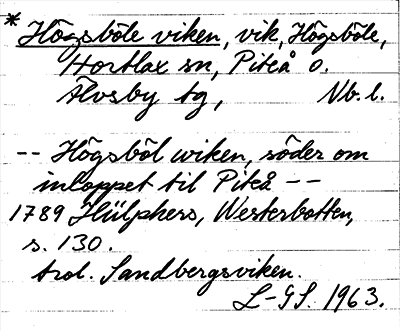 * Högsböle viken, vik, Högsböle,
Hortlax sn, Piteå o.
Älvsby tg, Nb. l.
-- Högsböl wiken, söder om
inloppet til Piteå --
1789 Hülphers, Westerbotten,
s. 130.
Trol. Sandbergsviken.
L-GS. 1963.